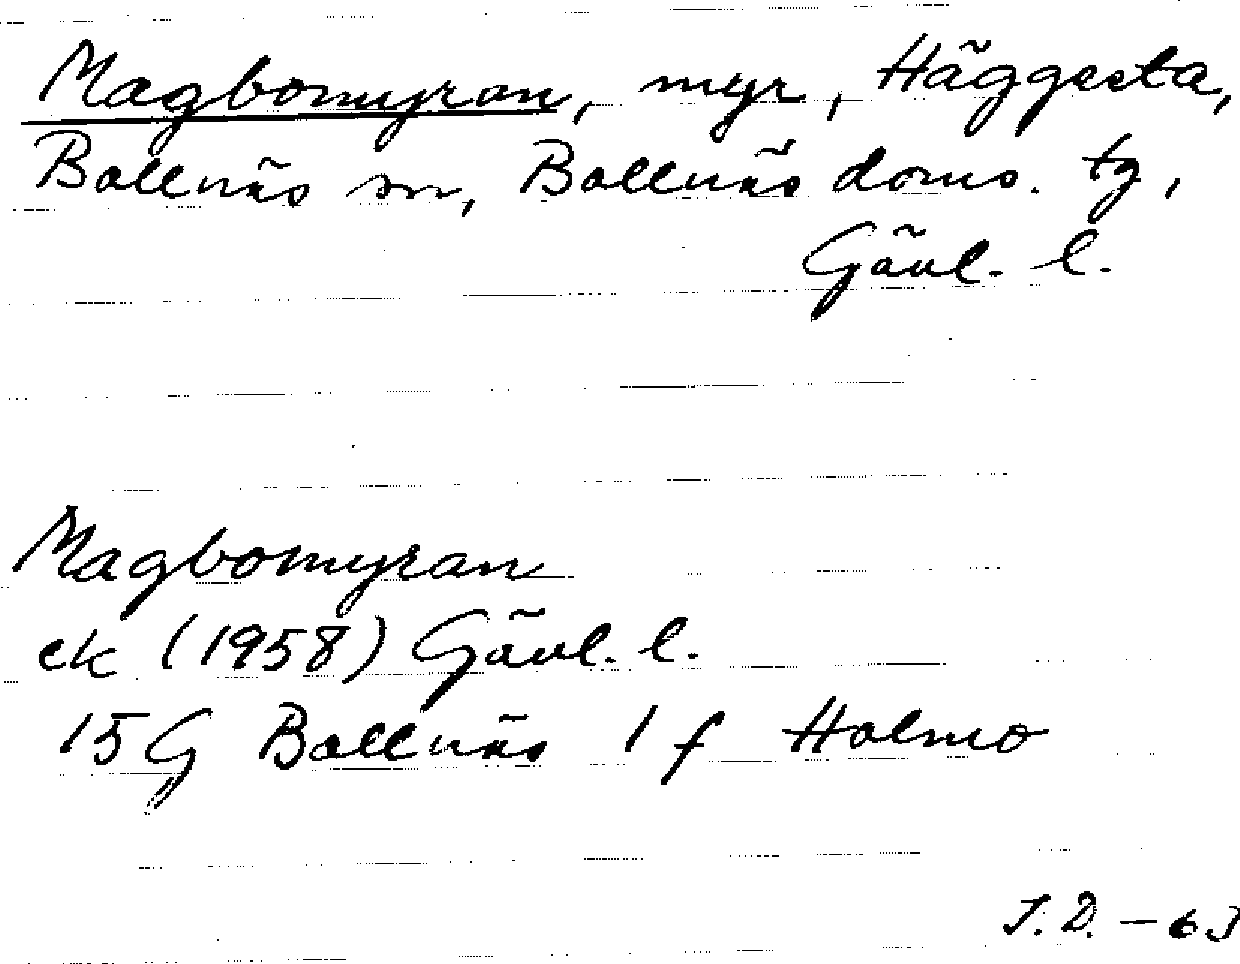 Magbomyran, myr, Häggesta,
Bollnäs sn, Bollnäs doms. tg,
Gävl. l.
Magbomyran
ek (1958) Gävl. l.
15G Bollnäs 1 f Holmo
J.D. - 63